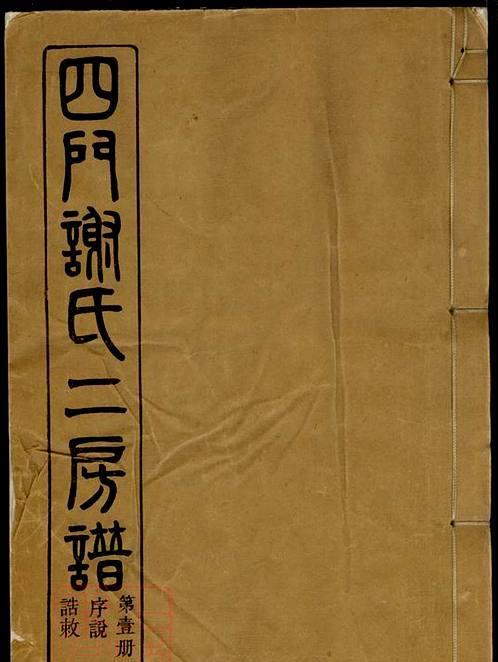 四門謝氏二房譜
第壹册
序說
誥敕